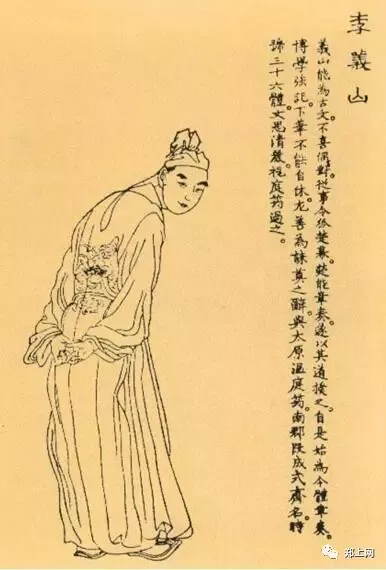 李義山
義山能為古文。不喜偶對。從事令狐楚幕。楚能章奏。遂以其道授之。自是始為今體章奏。
博學强記。下筆不能自休。尤善為誄奠之辭。與太原温庭筠。南郡段成式齊名。時
號三十六體。文思清麗。視庭筠過之。
郑上网